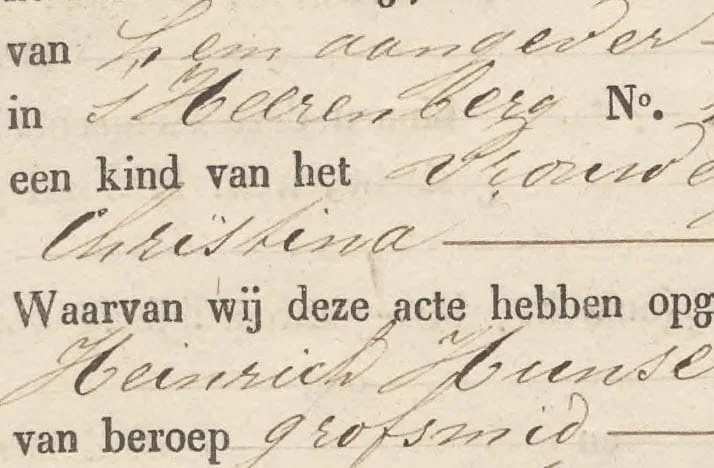 van hem aangever
in 's Heerenberg No.
een kind van het vrouwe
Christina
Waarvan wij deze acte hebben opg
Heinrich Hunse
van beroep grofsmid